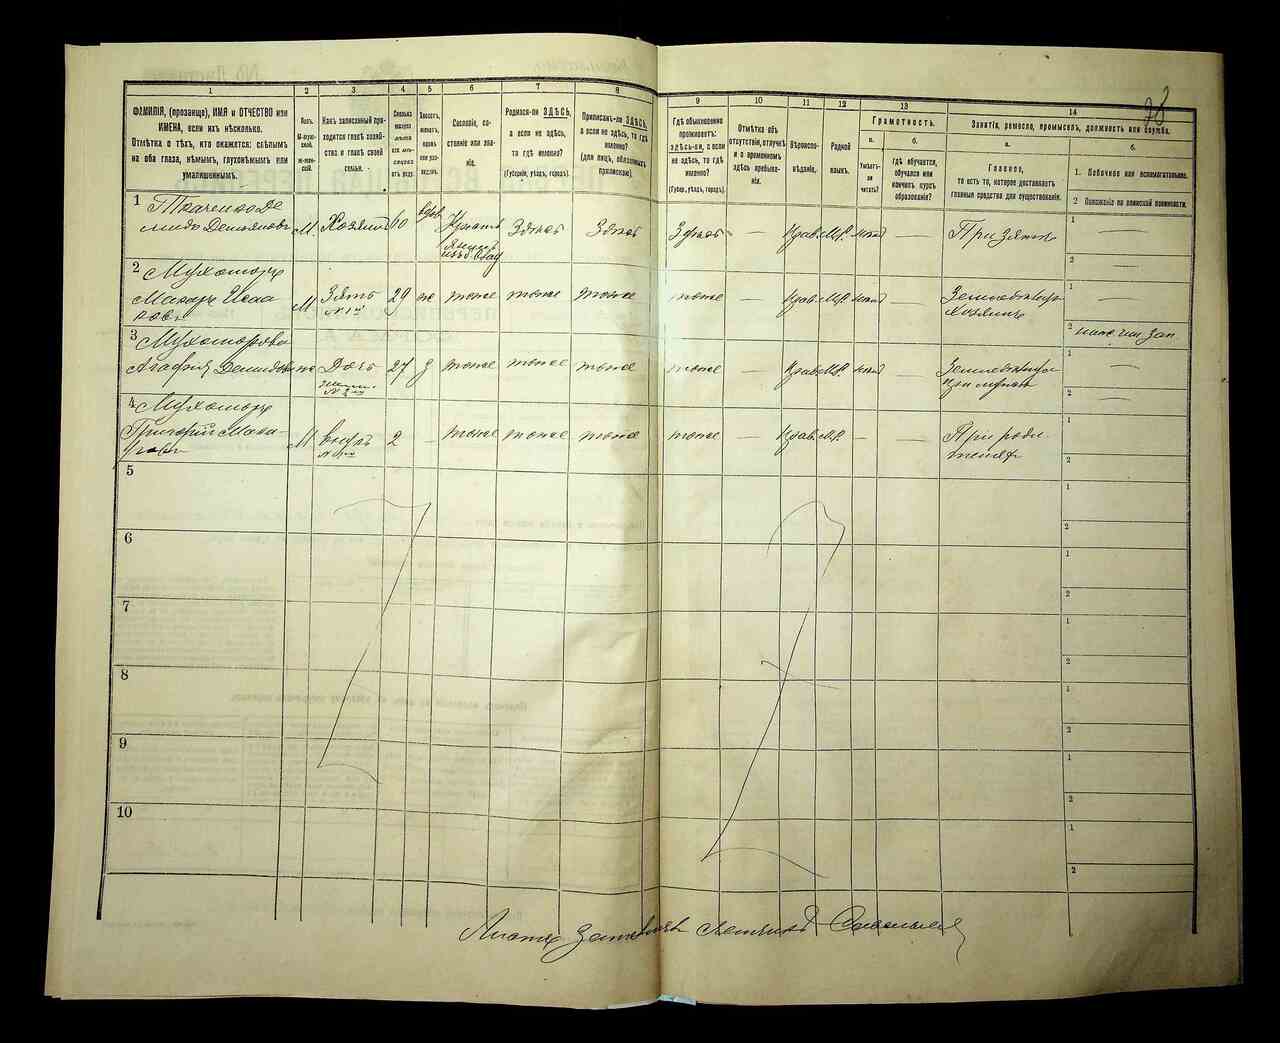 78
1 2 3 4 5 6 7 8 9 10 11 12 13 14
ФАМИЛІЯ, (прозвище), ИМЯ и ОТЧЕСТВО или
ИМЕНА, если ихъ нѣсколько.
Отмѣтка о тѣхъ, кто окажется: слѣпымъ
на оба глаза, нѣмымъ, глухонѣмымъ или
умалишеннымъ.
Полъ.
М-муж-
ской.
Ж-жен-
скій.
Какъ записанный при-
ходится главѣ хозяй-
ства и главѣ своей
семьи.
Сколько
минуло
лѣтъ
или мѣ-
сяцевъ
отъ роду.
Холостъ,
женатъ,
вдовъ
или раз-
веденъ.
Сословіе, со-
стояніе или зва-
ніе.
Родился-ли ЗДѢСЬ,
а если не здѣсь,
то гдѣ именно?
(Губернія, уѣздъ, городъ).
Приписанъ-ли ЗДѢСЬ,
а если не здѣсь, то гдѣ
именно?
(для лицъ, обязанныхъ
припискою).
Гдѣ обыкновенно
проживаетъ:
ЗДѢСЬ-ли, а если
не здѣсь, то гдѣ
именно?
(Губер., уѣздъ, городъ).
Отмѣтка объ
отсутствіи, отлучкѣ
и о временномъ
здѣсь пребыва-
ніи.
Вѣроиспо-
вѣданіе.
Родной
языкъ.
Грамотность.
а.
Умѣетъ-
ли
читать?
б.
гдѣ обучается,
обучался или
кончилъ курсъ
образованія?
Занятія, ремесло, промыселъ, должность или служба.
а.
Главное,
то есть то, которое доставляетъ
главныя средства для существованія.
б.
1. Побочное или вспомогательное.
2. Положеніе по воинской повинности.
1 Ткаченко Де
мидъ Демьяновъ М. Хозяинъ 60 вдов Здѣсь Здѣсь Здѣсь — Прав. М.Р. — При зятѣ 1 —
2 —
2 Мухоморъ
Макаръ Исаа
ковъ М Зять 29 ж тоже тоже тоже тоже — Прав. М.Р. — Земледѣлецъ
хозяинъ 1 —
2 зап.
3 Мухоморова
Агафія Демидова ж Дочь 27 з тоже тоже тоже тоже — Прав. М.Р. — Земледѣлецъ
при мужѣ 1 —
2 —
4 Мухоморъ
Григорій Мака-
ровъ М внукъ 2 — тоже тоже тоже тоже — Прав. М.Р. — — При роди-
теляхъ 1
2
5 1
2
6 1
2
7 1
2
8 1
2
9 1
2
10 1
2